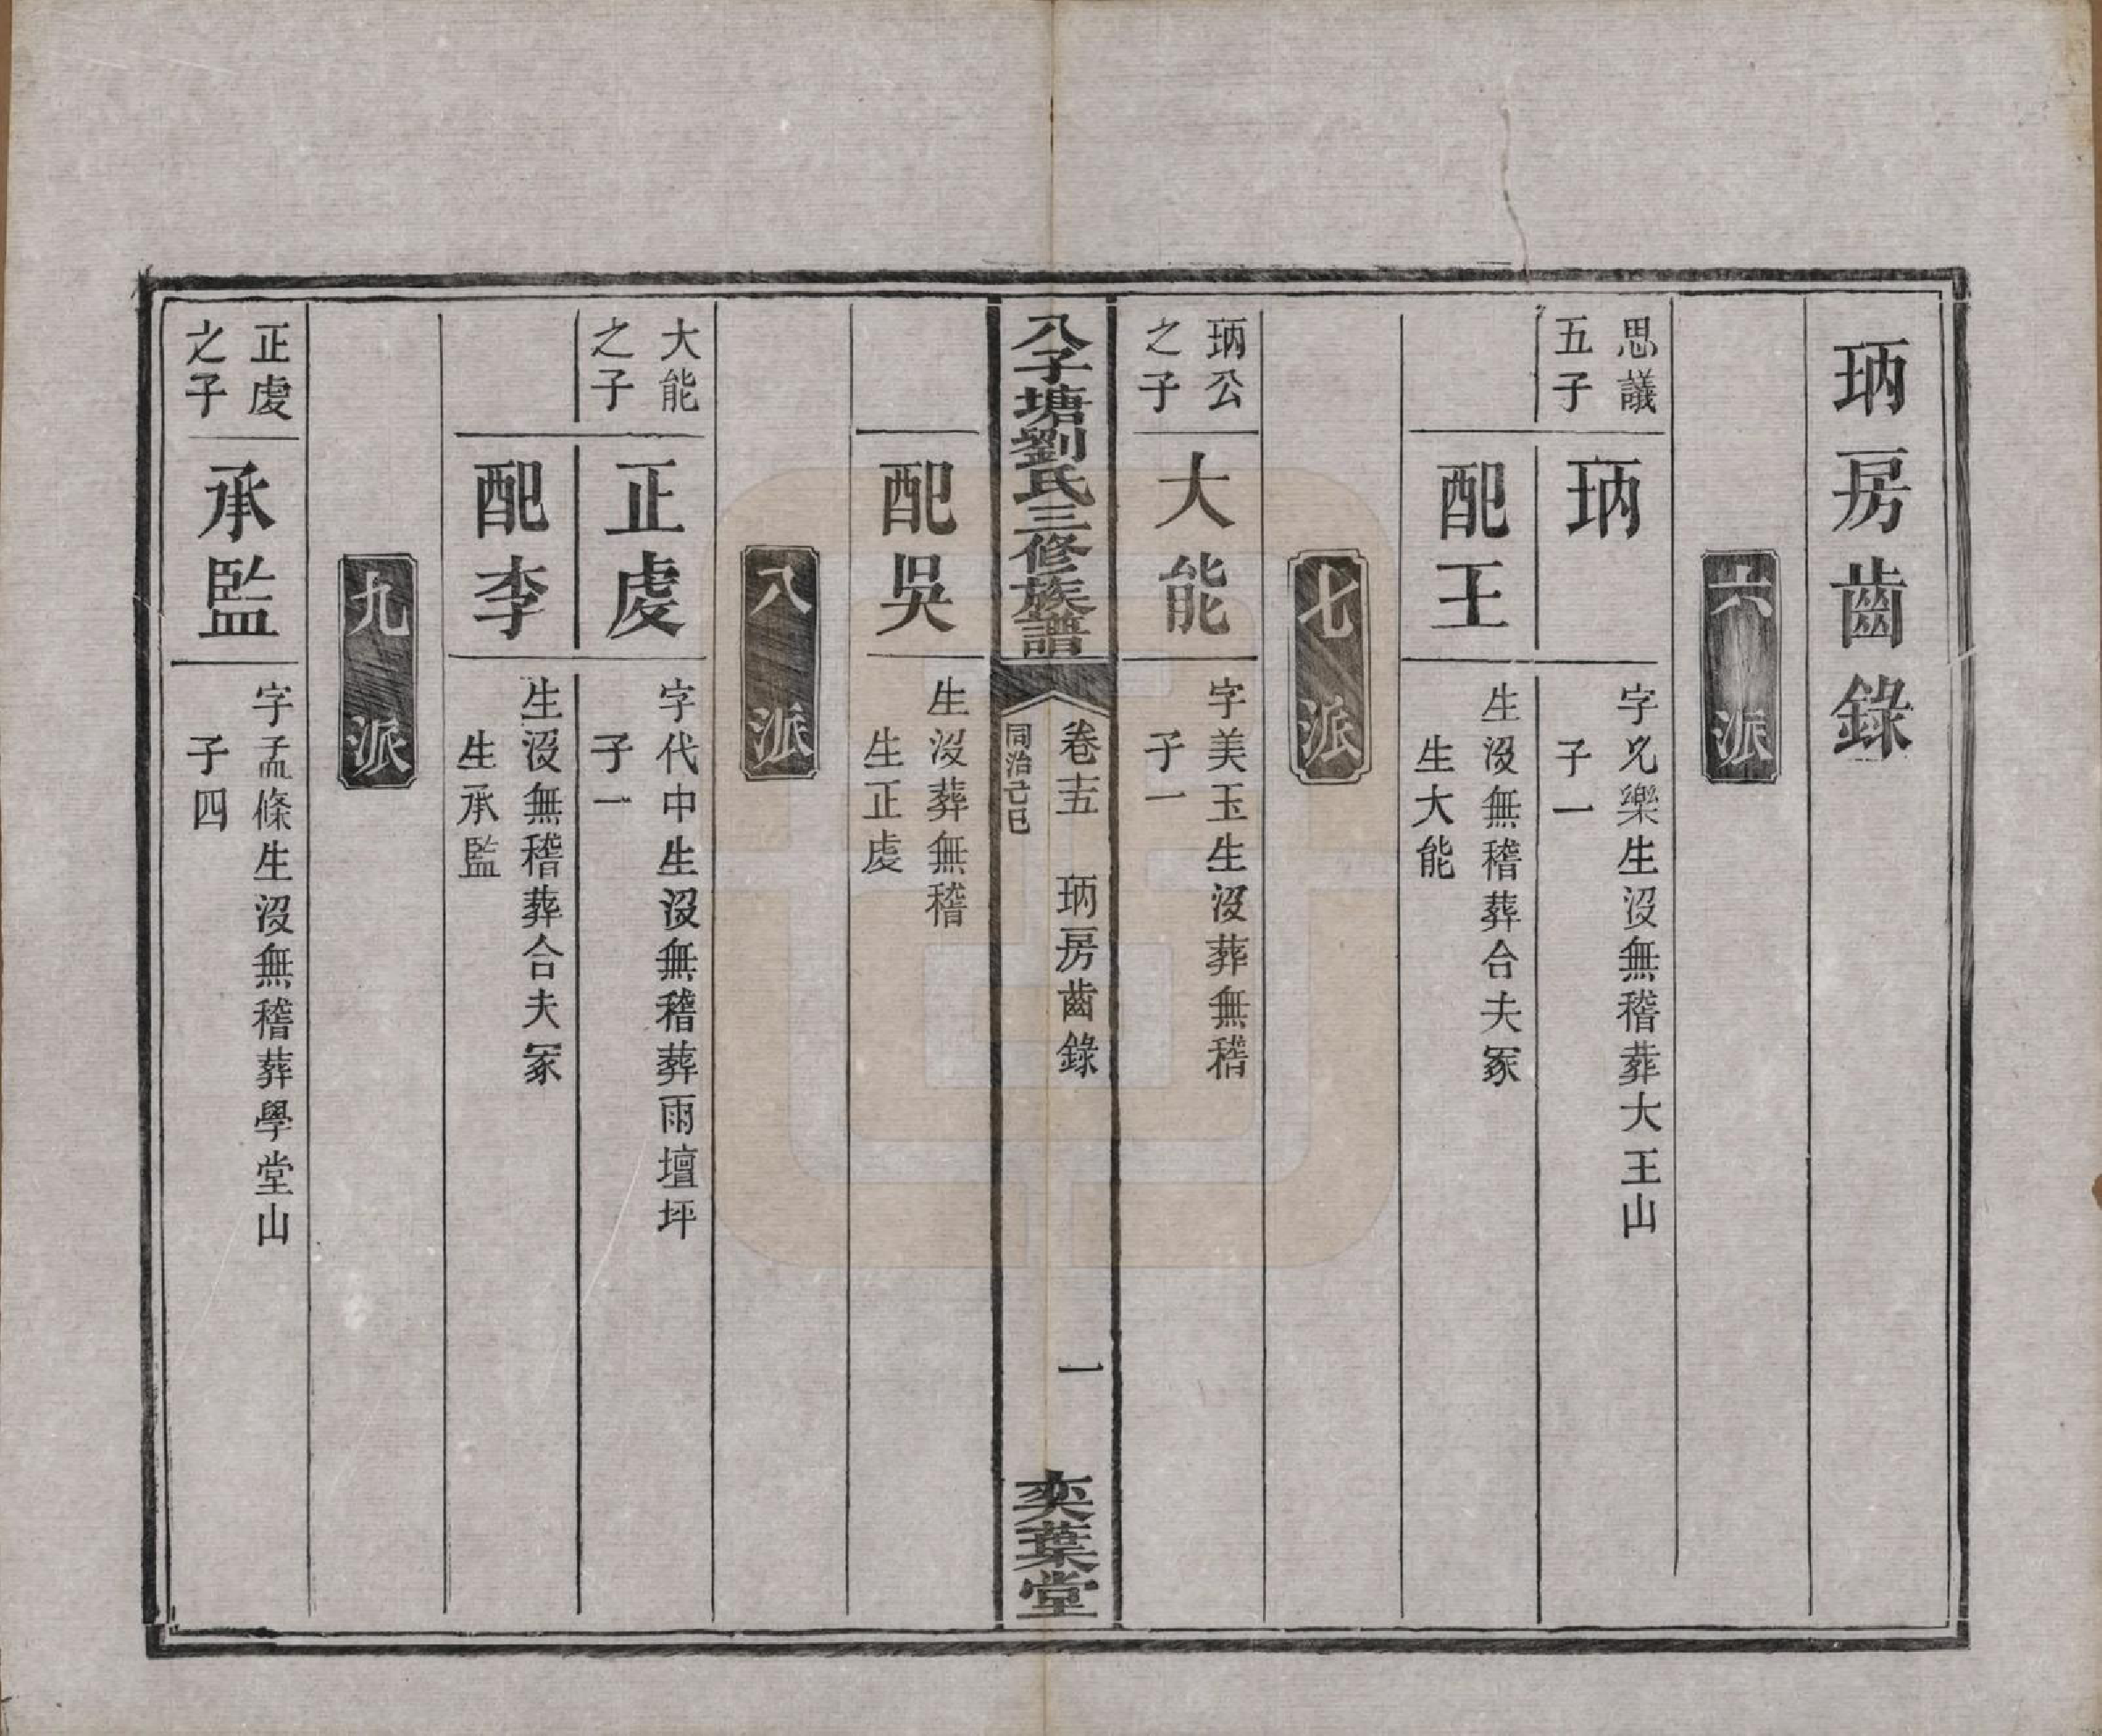 珃房齒錄
六派
思議
五子
珃
字允樂生沒無稽葬大王山
子一
配王
生沒無稽葬合夫冢
生大能
七派
珃公
之子
大能
字美玉生沒葬無稽
子一
八子塘劉氏三修族譜
卷十五 珃房齒錄 一
同治己巳
奕葉堂
配吳
生沒葬無稽
生正虔
八派
大能
之子
正虔
字代中生沒無稽葬雨壇坪
子一
配李
生沒無稽葬合夫冢
生承監
九派
正虔
之子
承監
字孟條生沒無稽葬學堂山
子四